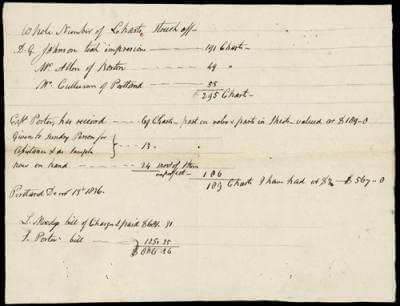 Whole Number of Charts struck off
D. G. Johnson took impressions 191 Charts
Mr. Allen of Boston 49
Mr. Cushman of Portland 55
295 Charts
Capt Porter, has received 69 Charts part in notes & parts in valued at $189-0
Given to sundry Person for
& as sample 13
now on hand 24 most of them
imperfect 106
189 Charts I have had at $3 $567-0
Portland Decr 13th 1836.
bill of Charges I paid $681.31
S. Porter bill 125.25
$806.56